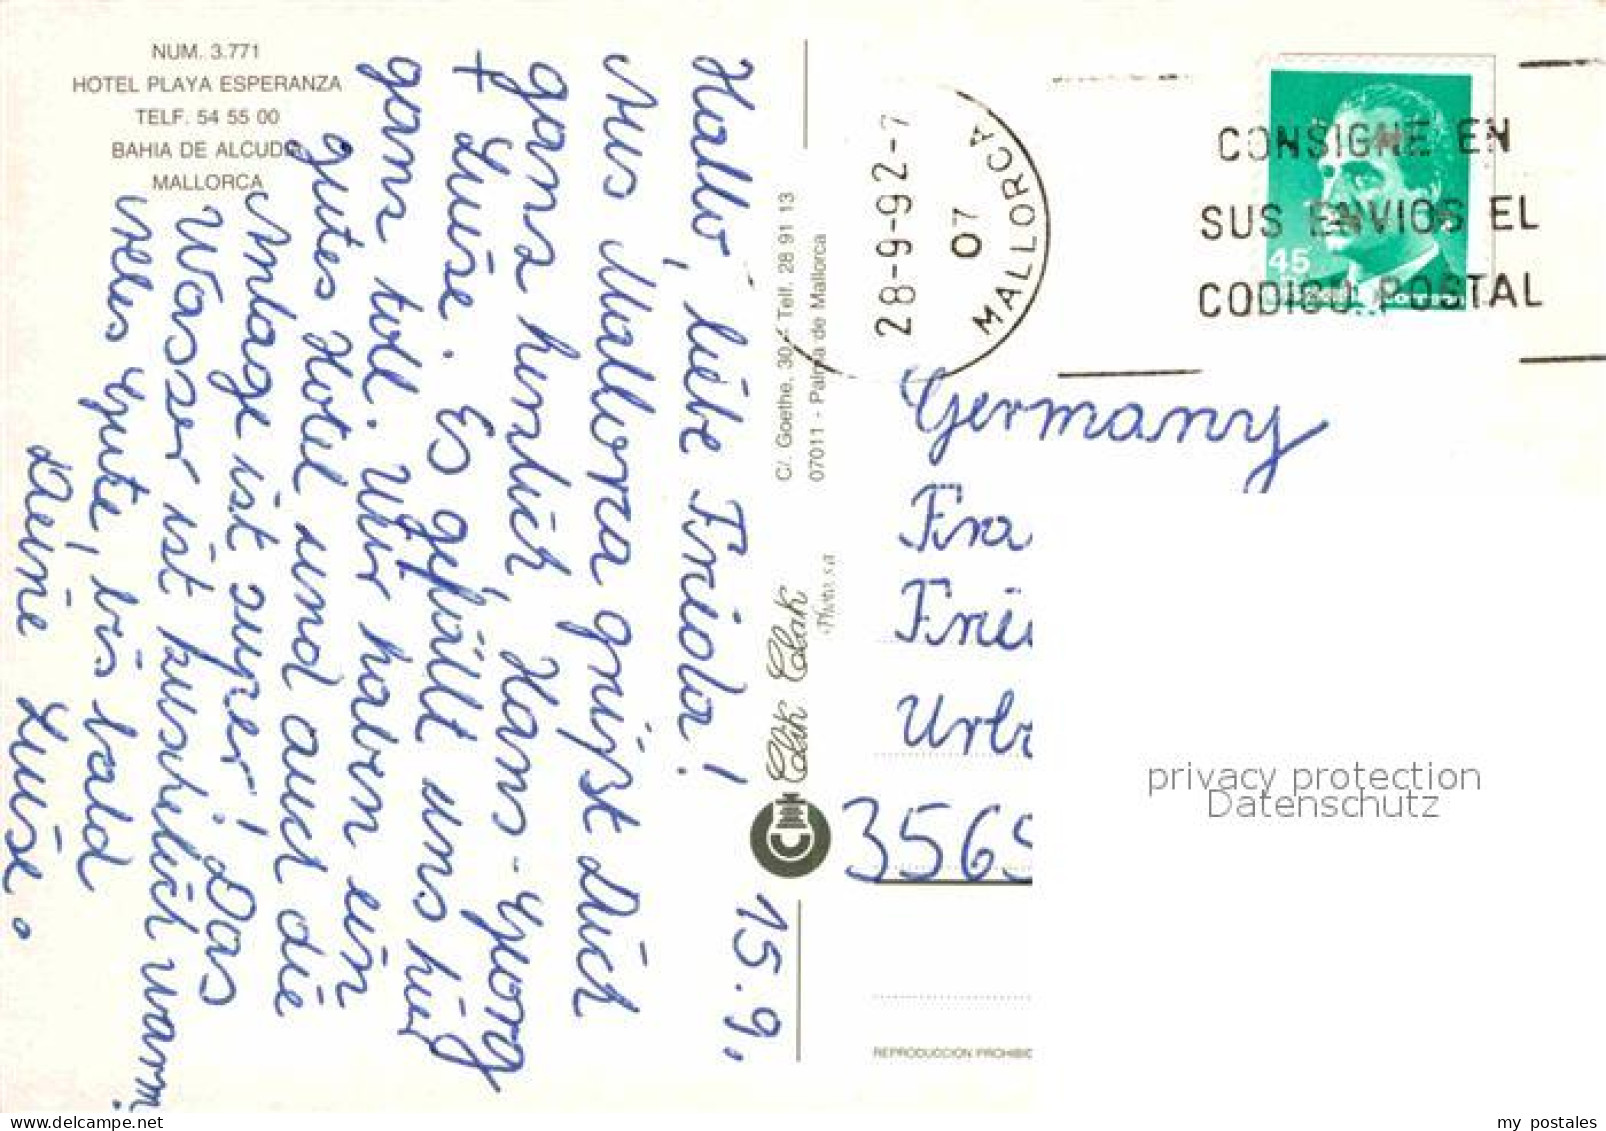 NUM. 3.771
HOTEL PLAYA ESPERANZA
TELF. 54 55 00
BAHIA DE ALCUDIA
MALLORCA
15. 9.
Hallo, liebe Frieda!
Aus Mallorca grüßt Dich
ganz herzlich, Hans-Georg
+ Luise. Es gefällt uns hier
ganz toll. Wir haben ein
gutes Hotel und auch die
Anlage ist super! Das
Wasser ist herrlich warm!
Alles Gute, bis bald
Deine Luise.
C/. Goethe, 30 - Telf. 28 91 13
07011 - Palma de Mallorca
Clik Clak
28-9-92-7
07
MALLORCA
CONSIGNE EN
SUS ENVIOS EL
CODIGO POSTAL
45
Germany
Fra
Frie
Urb
3569
REPRODUCCION PROHIBID
privacy protection
Datenschutz
my postales